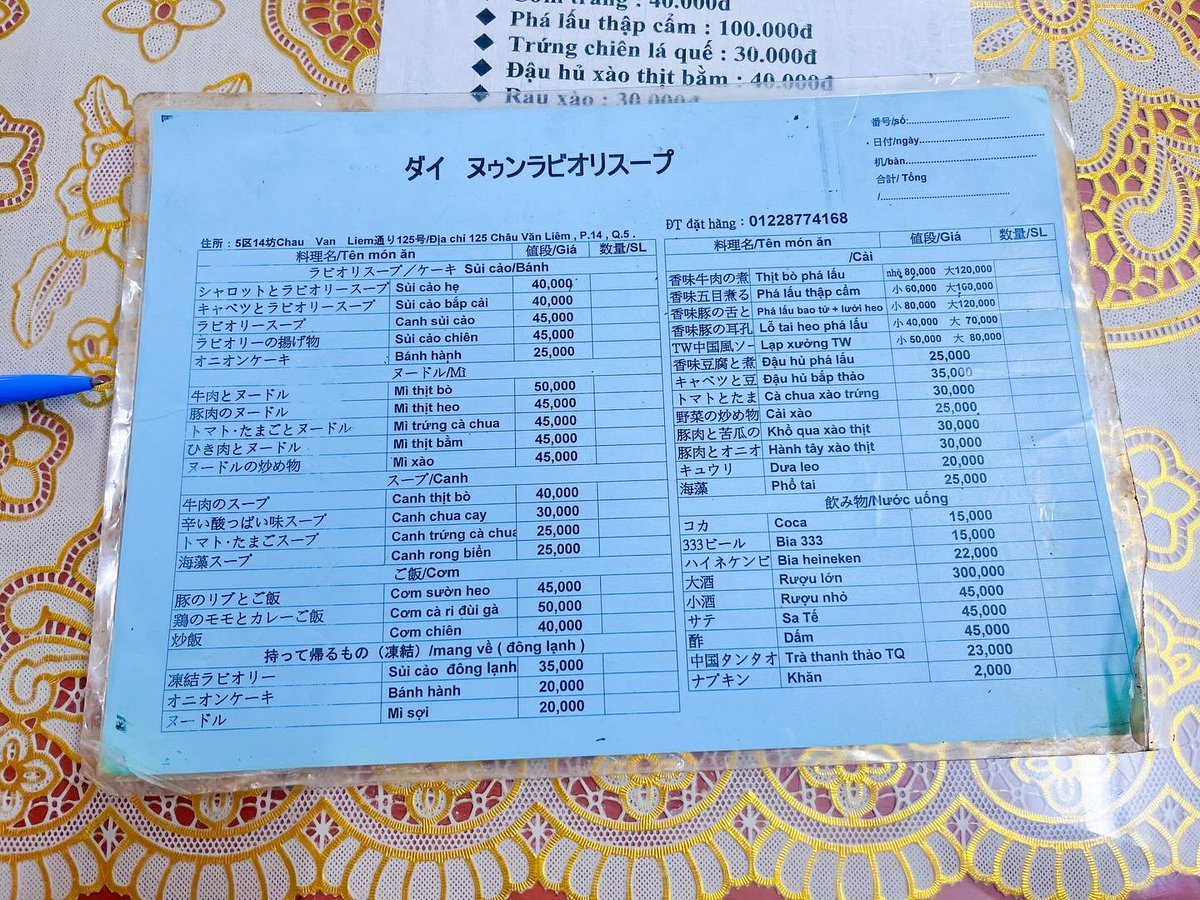 Cơm trắng : 40.000đ
◆ Phá lấu thập cẩm : 100.000đ
◆ Trứng chiên lá quế : 30.000đ
◆ Đậu hủ xào thịt bằm : 40.000đ
◆ Rau xào : 30.000đ
番号/số:
日付/ngày
机/bàn
合計/ Tổng
/
ダイ ヌゥンラビオリスープ
住所：5区14坊Chau Van Liem通り125号/Địa chỉ 125 Châu Văn Liêm , P.14 , Q.5 .
料理名/Tên món ăn 値段/Giá 数量/SL
ラビオリスープ／ケーキ Sủi cảo/Bánh
シャロットとラビオリースープ Sủi cảo hẹ 40,000
キャベツとラビオリースープ Sủi cảo bắp cải 40,000
ラビオリースープ Canh sủi cảo 45,000
ラビオリーの揚げ物 Sủi cảo chiên 45,000
オニオンケーキ Bánh hành 25,000
ヌードル/Mì
牛肉とヌードル Mì thịt bò 50,000
豚肉のヌードル Mì thịt heo 45,000
トマト･たまごとヌードル Mì trứng cà chua 45,000
ひき肉とヌードル Mì thịt bằm 45,000
ヌードルの炒め物 Mì xào 45,000
スープ/Canh
牛肉のスープ Canh thịt bò 40,000
辛い酸っぱい味スープ Canh chua cay 30,000
トマト･たまごスープ Canh trứng cà chua 25,000
海藻スープ Canh rong biển 25,000
ご飯/Cơm
豚のリブとご飯 Cơm sườn heo 45,000
鶏のモモとカレーご飯 Cơm cà ri đùi gà 50,000
炒飯 Cơm chiên 40,000
持って帰るもの（凍結）/mang về ( đông lạnh )
凍結ラビオリー Sủi cảo đông lạnh 35,000
オニオンケーキ Bánh hành 20,000
ヌードル Mì sợi 20,000
ĐT đặt hàng : 01228774168
料理名/Tên món ăn 値段/Giá 数量/SL
/Cải
香味牛肉の煮 Thịt bò phá lấu nhỏ 80,000 大120,000
香味五目煮る Phá lấu thập cẩm 小 60,000 大160,000
香味豚の舌と Phá lấu bao tử + lưỡi heo 小 80,000 大120,000
香味豚の耳孔 Lỗ tai heo phá lấu 小 40,000 大 70,000
TW中国風ソー Lạp xưởng TW 小 50,000 大 80,000
香味豆腐と煮 Đậu hủ phá lấu 25,000
キャベツと豆 Đậu hủ bắp thảo 35,000
トマトとたま Cà chua xào trứng 30,000
野菜の炒め物 Cải xào 25,000
豚肉と苦瓜の Khổ qua xào thịt 30,000
豚肉とオニオ Hành tây xào thịt 30,000
キュウリ Dưa leo 20,000
海藻 Phổ tai 25,000
飲み物/Nước uống
コカ Coca 15,000
333ビール Bia 333 15,000
ハイネケンビ Bia heineken 22,000
大酒 Rượu lớn 300,000
小酒 Rượu nhỏ 45,000
サテ Sa Tế 45,000
酢 Dấm 45,000
中国タンタオ Trà thanh thảo TQ 23,000
ナプキン Khăn 2,000